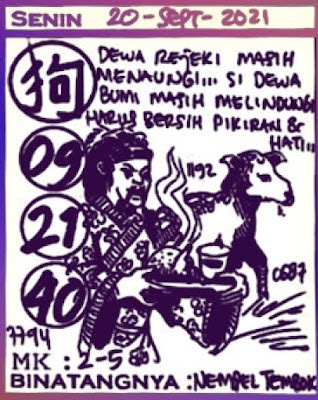 SENIN 20-SEPT-2021
DEWA REJEKI MASIH
MENAUNGI,,, SI DEWA
BUMI MASIH MELINDUNGI
HARUS BERSIH PIKIRAN &
HATI...
狗
09
21
40
1192
0687
7794
MK : 2-5
BINATANGNYA : NEMPEL TEMBOK